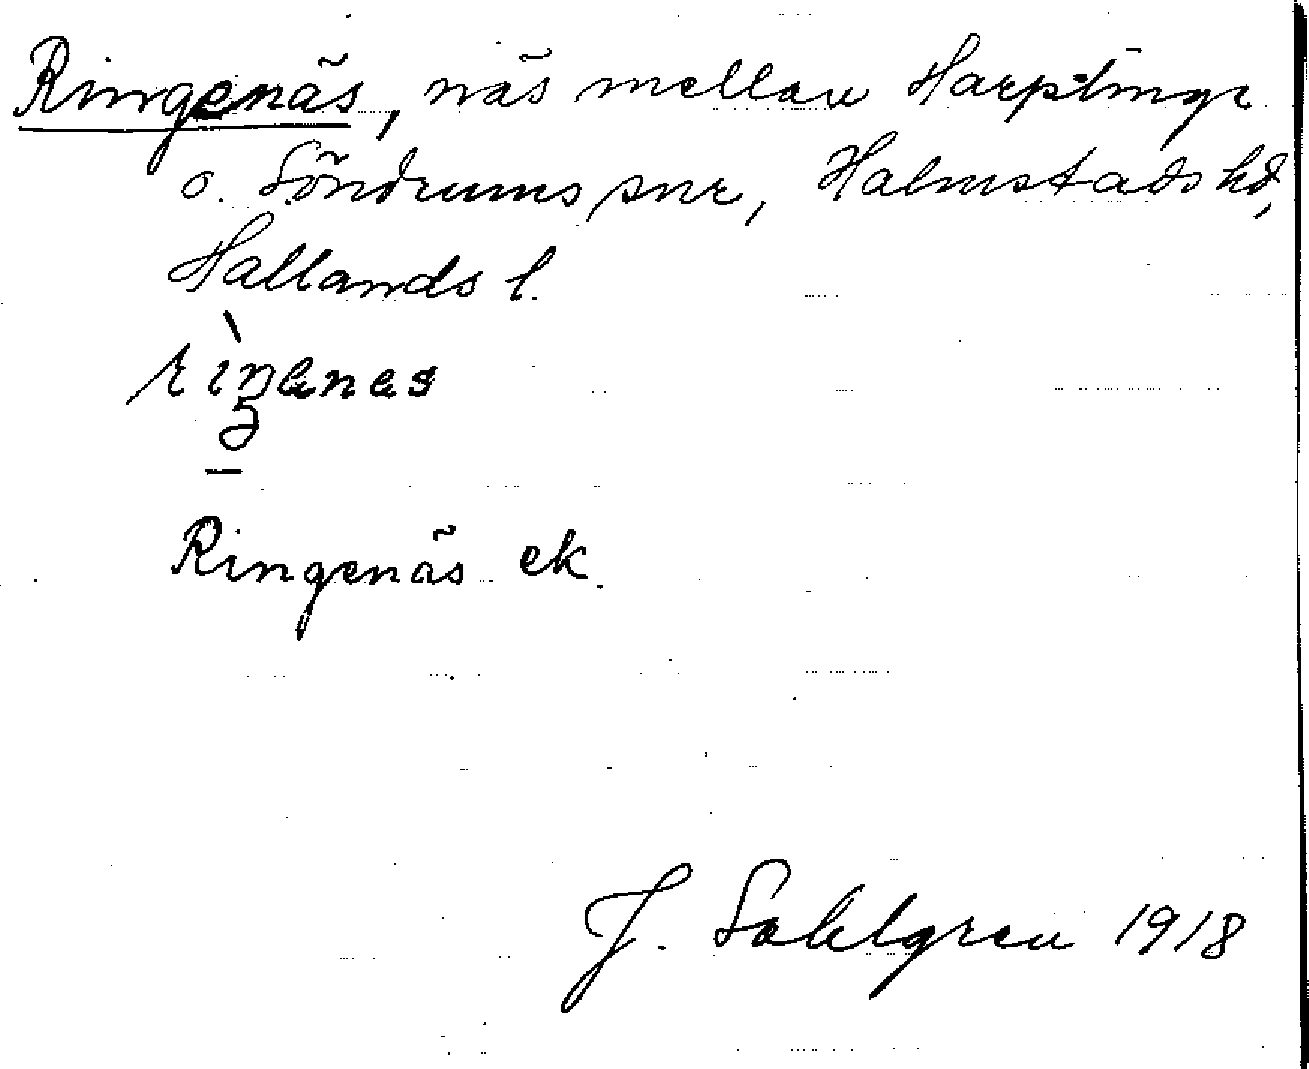 Ringenäs, näs mellan Harplinge
o. Söndrums snr, Halmstads hd,
Hallands l.
Ringenäs ek.
J. Sahlgren 1918